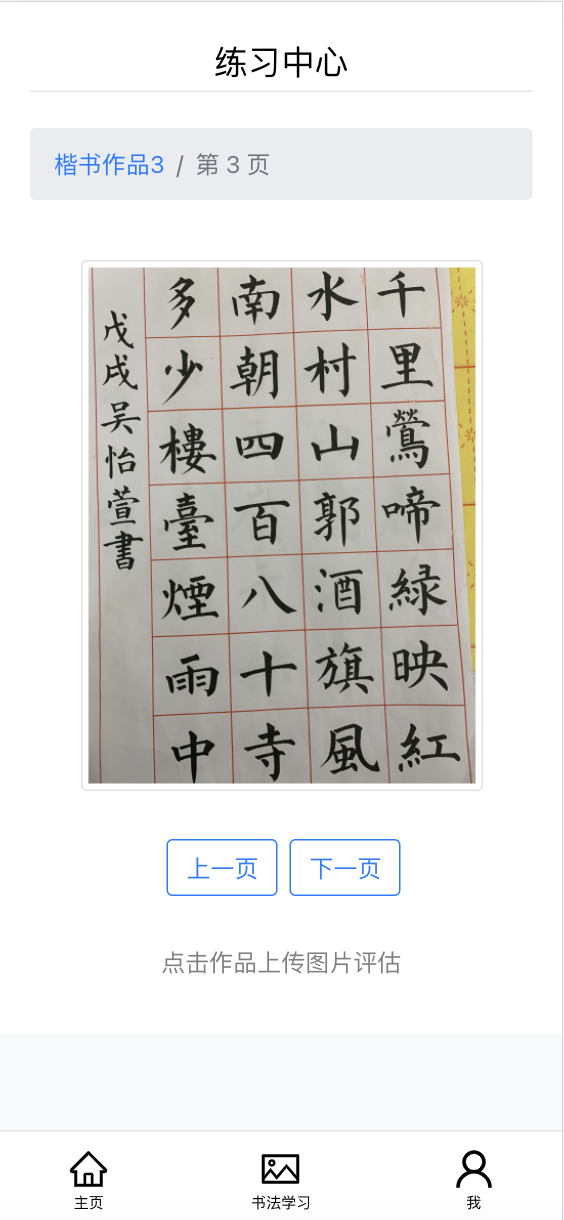 练习中心
楷书作品3 / 第 3 页
千里鶯啼緑映紅
水村山郭酒旗風
南朝四百八十寺
多少樓臺煙雨中
戊戌吴怡萱書
上一页
下一页
点击作品上传图片评估
主页
书法学习
我